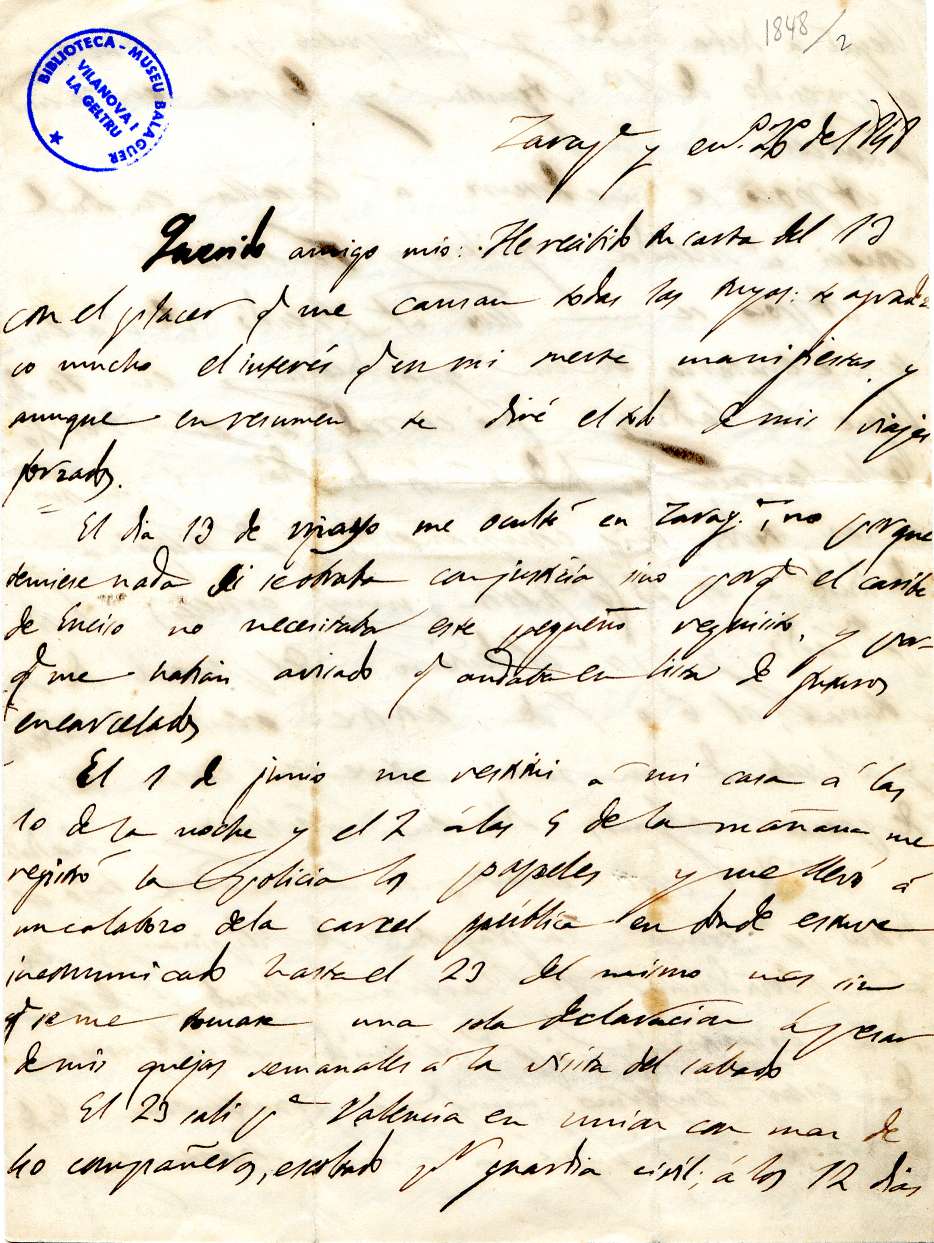 1848/2
BIBLIOTECA - MUSEU BALAGUER
VILANOVA I
LA GELTRU
Zarag.ª y en.º 26 de 1848
Querido amigo mio: He recibido tu carta del 13
con el placer q.e me causan todas las tuyas: te agrade
co mucho el interés q.e en mi suerte manifiestas, y
aunque en resumen te diré el todo de mis viajes
forzados.
El dia 13 de mayo me oculté en Zarag.ª, no porque
temiese nada si se obraba con justicia sino porq.e el caribe
de Enero no necesitaba este pequeño requisito, y por-
q.e me habian avisado q.e andaba en lista de futuros
encarcelados
El 1 de junio me restitui á mi casa á las
10 de la noche y el 2 á las 5 de la mañana me
registró la policia los papeles y me llevó á
un calabozo de la carcel pública en donde estuve
incomunicado hasta el 23 del mismo mes sin
q.e se me tomase una sola declaracion á pesar
de mis quejas semanales á la visita del sábado
El 23 sali p.ª Valencia en union con mas de
40 compañeros, escoltado p.r guardia civil; á los 12 dias